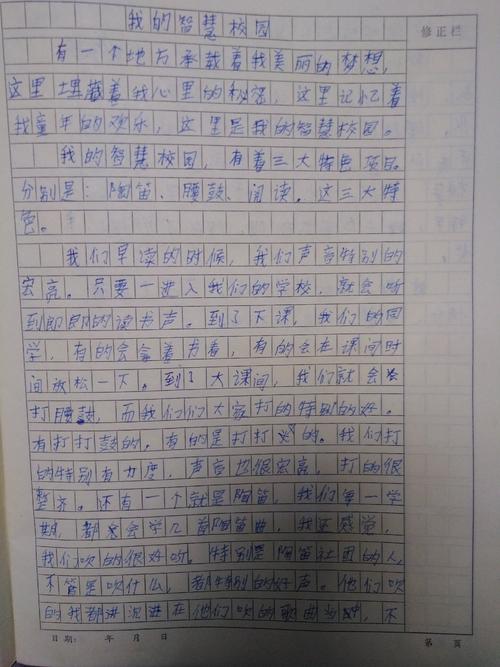 我的智慧校园
修正栏
有一个地方承载着我美丽的梦想，
这里埋藏着我心里的秘密，这里记忆着
我童年的欢乐，这里是我的智慧校园。
我的智慧校园，有着三大特色项目
分别是：陶笛、腰鼓、阅读。这三大特
色。
我们早读的时候，我们声音特别的
宏亮。只要一进入我们的学校，就会听
到郎郎的读书声。到了下课，我们的同
学，有的会拿着书看，有的会在课间时
间放松一下。到了大课间，我们就会
打腰鼓，而我们们大家打的特别的好。
有打打鼓的，有的是打打的。我们打
的特别有力度，声音也很宏亮，打的很
整齐。还有一个就是陶笛，我们每一学
期，都会学几首陶笛曲，我还感觉，
我们吹的很好听。特别是陶笛社团的人，
不管是吹什么，都特别的好声。他们吹
的我都进沉进在他们吹的歌曲当中，不
日期： 年 月 日
第 页